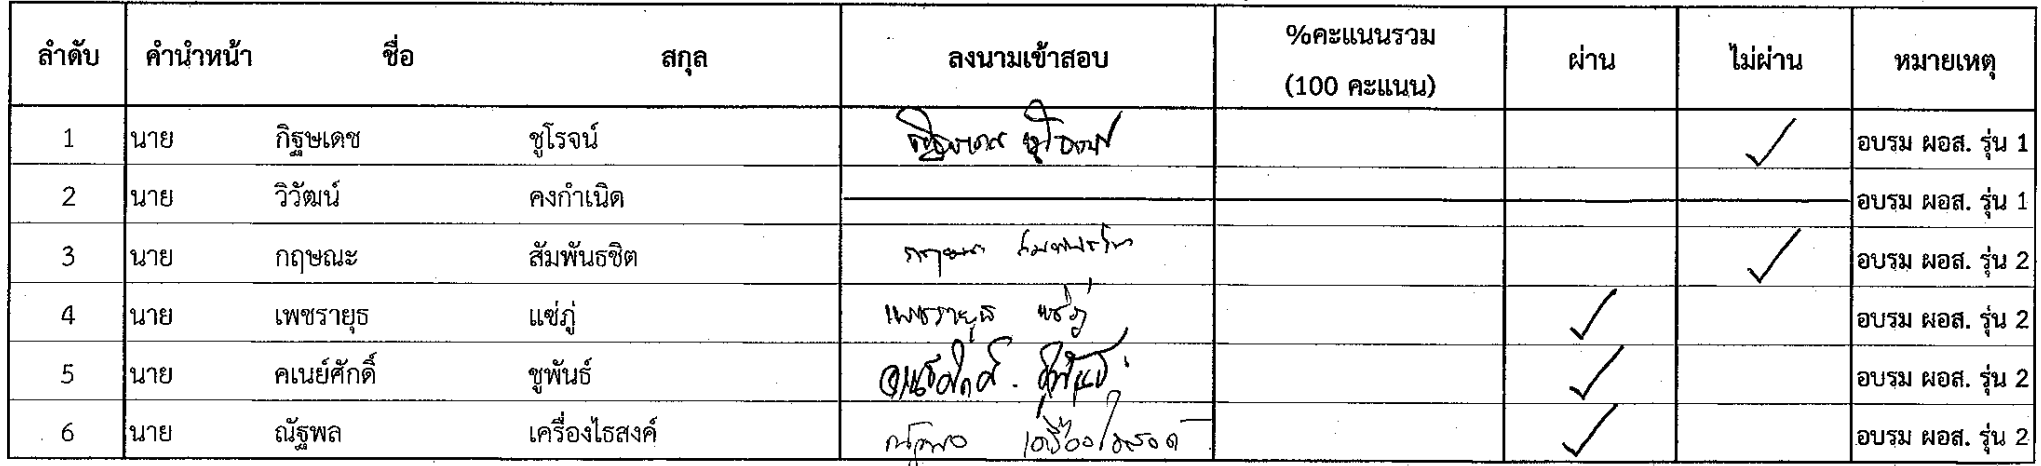 ลำดับ คำนำหน้า ชื่อ สกุล ลงนามเข้าสอบ %คะแนนรวม (100 คะแนน) ผ่าน ไม่ผ่าน หมายเหตุ
1 นาย กิฐษเดช ชูโรจน์ กิฐษเดช ชูโรจน์ ✓ อบรม ผอส. รุ่น 1
2 นาย วิวัฒน์ คงกำเนิด อบรม ผอส. รุ่น 1
3 นาย กฤษณะ สัมพันธชิต กฤษณะ สัมพันธชิต ✓ อบรม ผอส. รุ่น 2
4 นาย เพชรายุธ แซ่ภู่ เพชรายุธ แซ่ภู่ ✓ อบรม ผอส. รุ่น 2
5 นาย คเนย์ศักดิ์ ชูพันธ์ คเนย์ศักดิ์ ชูพันธ์ ✓ อบรม ผอส. รุ่น 2
6 นาย ณัฐพล เครื่องไธสงค์ ณัฐพล เครื่องไธสงค์ ✓ อบรม ผอส. รุ่น 2